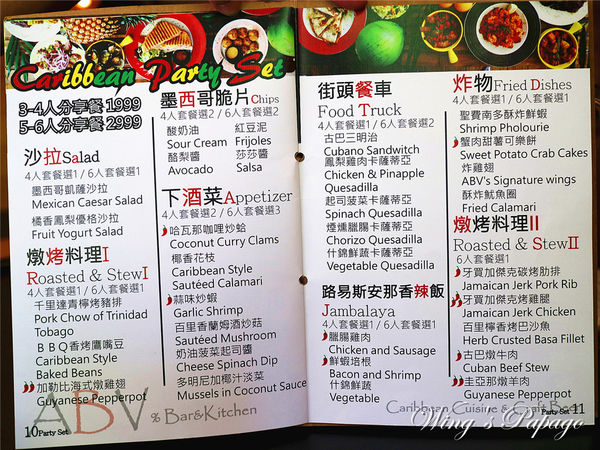 Caribbean Party Set
3-4人分享餐 1999
5-6人分享餐 2999
沙拉Salad
4人套餐選1 / 6人套餐選1
墨西哥凱薩沙拉
Mexican Caesar Salad
橘香鳳梨優格沙拉
Fruit Yogurt Salad
燉烤料理I
Roasted & StewI
4人套餐選1 / 6人套餐選1
千里達青檸烤豬排
Pork Chow of Trinidad
Tobago
ＢＢＱ香烤鷹嘴豆
Caribbean Style
Baked Beans
加勒比海式燉雞翅
Guyanese Pepperpot
墨西哥脆片Chips
4人套餐選2 / 6人套餐選2
酸奶油 紅豆泥
Sour Cream Frijoles
酪梨醬 莎莎醬
Avocado Salsa
下酒菜Appetizer
4人套餐選2 / 6人套餐選3
哈瓦那咖哩炒蛤
Coconut Curry Clams
椰香花枝
Caribbean Style
Sautéed Calamari
蒜味炒蝦
Garlic Shrimp
百里香蘭姆酒炒菇
Sautéed Mushroom
奶油菠菜起司醬
Cheese Spinach Dip
多明尼加椰汁淡菜
Mussels in Coconut Sauce
ABV
% Bar&Kitchen
10 Party Set
街頭餐車
Food Truck
4人套餐選1 / 6人套餐選2
古巴三明治
Cubano Sandwitch
鳳梨雞肉卡薩蒂亞
Chicken & Pinapple
Quesadilla
起司菠菜卡薩蒂亞
Spinach Quesadilla
煙燻臘腸卡薩蒂亞
Chorizo Quesadilla
什錦鮮蔬卡薩蒂亞
Vegetable Quesadilla
路易斯安那香辣飯
Jambalaya
4人套餐選1 / 6人套餐選1
臘腸雞肉
Chicken and Sausage
鮮蝦培根
Bacon and Shrimp
什錦鮮蔬
Vegetable
炸物Fried Dishes
4人套餐選1 / 6人套餐選1
聖費南多酥炸鮮蝦
Shrimp Pholourie
蟹肉甜薯可樂餅
Sweet Potato Crab Cakes
炸雞翅
ABV's Signature wings
酥炸魷魚圈
Fried Calamari
燉烤料理II
Roasted & StewII
6人套餐選1
牙買加傑克碳烤肋排
Jamaican Jerk Pork Rib
牙買加傑克烤雞腿
Jamaican Jerk Chicken
百里檸香烤巴沙魚
Herb Crusted Basa Fillet
古巴燉牛肉
Cuban Beef Stew
圭亞那燉羊肉
Guyanese Pepperpot
Caribbean Cuisine & Craft Beer
Party Set 11
Wing's Papago